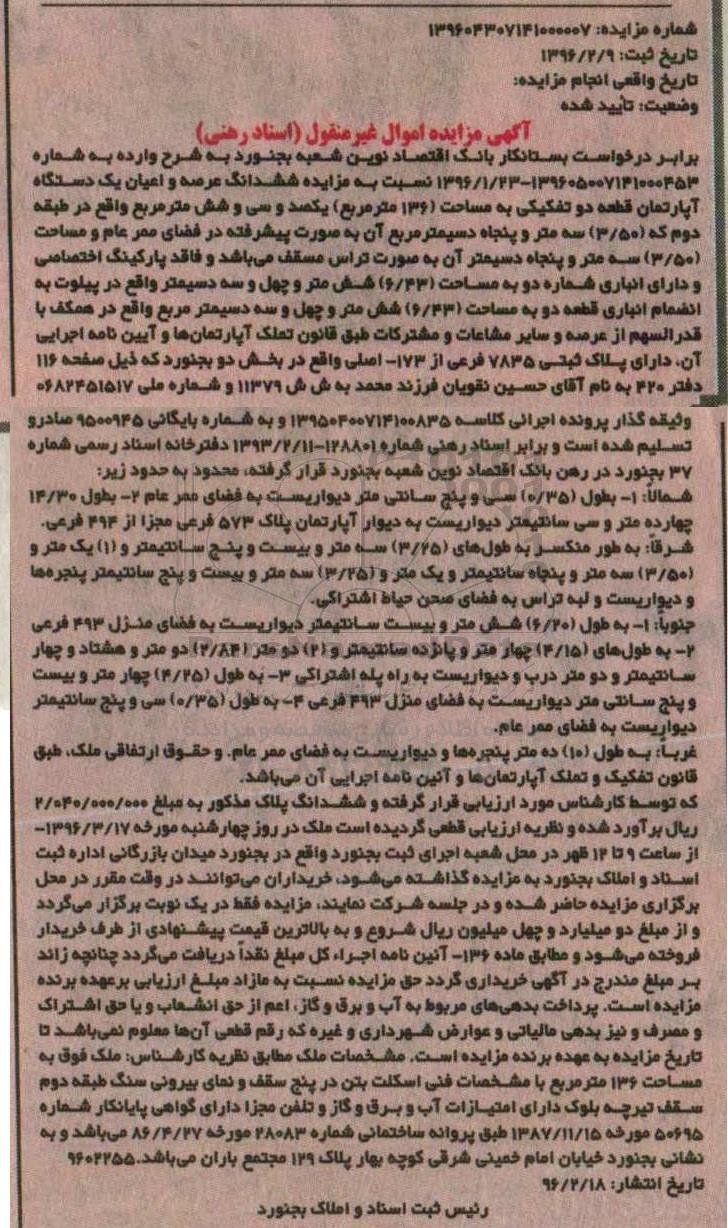 شماره مزایده: ۱۳۹۶۰۴۳۰۷۱۴۱۰۰۰۰۰۷
تاریخ ثبت: ۱۳۹۶/۲/۹
تاریخ واقعی انجام مزایده:
وضعیت: تأیید شده
آگهی مزایده اموال غیرمنقول (اسناد رهنی)
برابر درخواست بستانکار بانک اقتصاد نوین شعبه بجنورد به شرح وارده به شماره
۱۳۹۶/۱/۲۳-۱۳۹۶۰۵۰۰۷۱۴۱۰۰۰۴۵۳ نسبت به مزایده ششدانگ عرصه و اعیان یک دستگاه
آپارتمان قطعه دو تفکیکی به مساحت (۱۳۶ مترمربع) یکصد و سی و شش مترمربع واقع در طبقه
دوم که (۳/۵۰) سه متر و پنجاه دسیمترمربع آن به صورت پیشرفته در فضای ممر عام و مساحت
(۳/۵۰) سه متر و پنجاه دسیمتر آن به صورت تراس مسقف می‌باشد و فاقد پارکینگ اختصاصی
و دارای انباری شماره دو به مساحت (۶/۴۳) شش متر و چهل و سه دسیمتر واقع در پیلوت به
انضمام انباری قطعه دو به مساحت (۶/۴۳) شش متر و چهل و سه دسیمتر مربع واقع در همکف با
قدرالسهم از عرصه و سایر مشاعات و مشترکات طبق قانون تملک آپارتمان‌ها و آیین نامه اجرایی
آن، دارای پلاک ثبتی ۷۸۳۵ فرعی از ۱۷۳- اصلی واقع در بخش دو بجنورد که ذیل صفحه ۱۱۶
دفتر ۴۲۰ به نام آقای حسین نقویان فرزند محمد به ش ش ۱۱۳۷۹ و شماره ملی ۰۶۸۲۴۵۱۵۱۷
وثیقه گذار پرونده اجرائی کلاسه ۱۳۹۵۰۴۰۰۷۱۴۱۰۰۸۳۵ و به شماره بایگانی ۹۵۰۰۹۴۵ صادر و
تسلیم شده است و برابر اسناد رهنی شماره ۱۲۸۸۰۱-۱۳۹۳/۲/۱۱ دفترخانه اسناد رسمی شماره
۳۷ بجنورد در رهن بانک اقتصاد نوین شعبه بجنورد قرار گرفته، محدود به حدود زیر:
شمالاً: ۱- بطول (۰/۳۵) سی و پنج سانتی متر دیواریست به فضای ممر عام ۲- بطول ۱۴/۳۰
چهارده متر و سی سانتیمتر دیواریست به دیوار آپارتمان پلاک ۵۷۳ فرعی مجزا از ۴۹۴ فرعی.
شرقاً: به طور منکسر به طول‌های (۳/۲۵) سه متر و بیست و پنج سانتیمتر و (۱) یک متر و
(۳/۵۰) سه متر و پنجاه سانتیمتر و یک متر و (۳/۲۵) سه متر و بیست و پنج سانتیمتر پنجره‌ها
و دیواریست و لبه تراس به فضای صحن حیاط اشتراکی.
جنوباً: ۱- به طول (۶/۲۰) شش متر و بیست سانتیمتر دیواریست به فضای منزل ۴۹۳ فرعی
۲- به طول‌های (۴/۱۵) چهار متر و پانزده سانتیمتر و (۲) دو متر (۲/۸۴) دو متر و هشتاد و چهار
سانتیمتر و دو متر درب و دیواریست به راه پله اشتراکی ۳- به طول (۴/۲۵) چهار متر و بیست
و پنج سانتی متر دیواریست به فضای منزل ۴۹۳ فرعی ۴- به طول (۰/۳۵) سی و پنج سانتیمتر
دیواریست به فضای ممر عام.
غرباً: به طول (۱۰) ده متر پنجره‌ها و دیواریست به فضای ممر عام. و حقوق ارتفاقی ملک، طبق
قانون تفکیک و تملک آپارتمان‌ها و آئین نامه اجرایی آن می‌باشد.
که توسط کارشناس مورد ارزیابی قرار گرفته و ششدانگ پلاک مذکور به مبلغ ۲/۰۴۰/۰۰۰/۰۰۰
ریال برآورد شده و نظریه ارزیابی قطعی گردیده است ملک در روز چهارشنبه مورخه ۱۳۹۶/۳/۱۷-
از ساعت ۹ تا ۱۲ ظهر در محل شعبه اجرای ثبت بجنورد واقع در بجنورد میدان بازرگانی اداره ثبت
اسناد و املاک بجنورد به مزایده گذاشته می‌شود، خریداران می‌توانند در وقت مقرر در محل
برگزاری مزایده حاضر شده و در جلسه شرکت نمایند، مزایده فقط در یک نوبت برگزار می‌گردد
و از مبلغ دو میلیارد و چهل میلیون ریال شروع و به بالاترین قیمت پیشنهادی از طرف خریدار
فروخته می‌شود و مطابق ماده ۱۳۶- آئین نامه اجراء کل مبلغ نقداً دریافت می‌گردد چنانچه زائد
بر مبلغ مندرج در آگهی خریداری گردد حق مزایده نسبت به مازاد مبلغ ارزیابی برعهده برنده
مزایده است. پرداخت بدهی‌های مربوط به آب و برق و گاز، اعم از حق انشعاب و یا حق اشتراک
و مصرف و نیز بدهی مالیاتی و عوارض شهرداری و غیره که رقم قطعی آن‌ها معلوم نمی‌باشد تا
تاریخ مزایده به عهده برنده مزایده است. مشخصات ملک مطابق نظریه کارشناس: ملک فوق به
مساحت ۱۳۶ مترمربع با مشخصات فنی اسکلت بتن در پنج سقف و نمای بیرونی سنگ طبقه دوم
سقف تیرچه بلوک دارای امتیازات آب و برق و گاز و تلفن مجزا دارای گواهی پایانکار شماره
۵۰۶۹۵ مورخه ۱۳۸۷/۱۱/۱۵ طبق پروانه ساختمانی شماره ۲۸۰۸۳ مورخه ۸۶/۴/۲۷ می‌باشد و به
نشانی بجنورد خیابان امام خمینی شرقی کوچه بهار پلاک ۱۲۹ مجتمع باران می‌باشد.۹۶۰۲۲۵۵
تاریخ انتشار: ۹۶/۲/۱۸
رئیس ثبت اسناد و املاک بجنورد